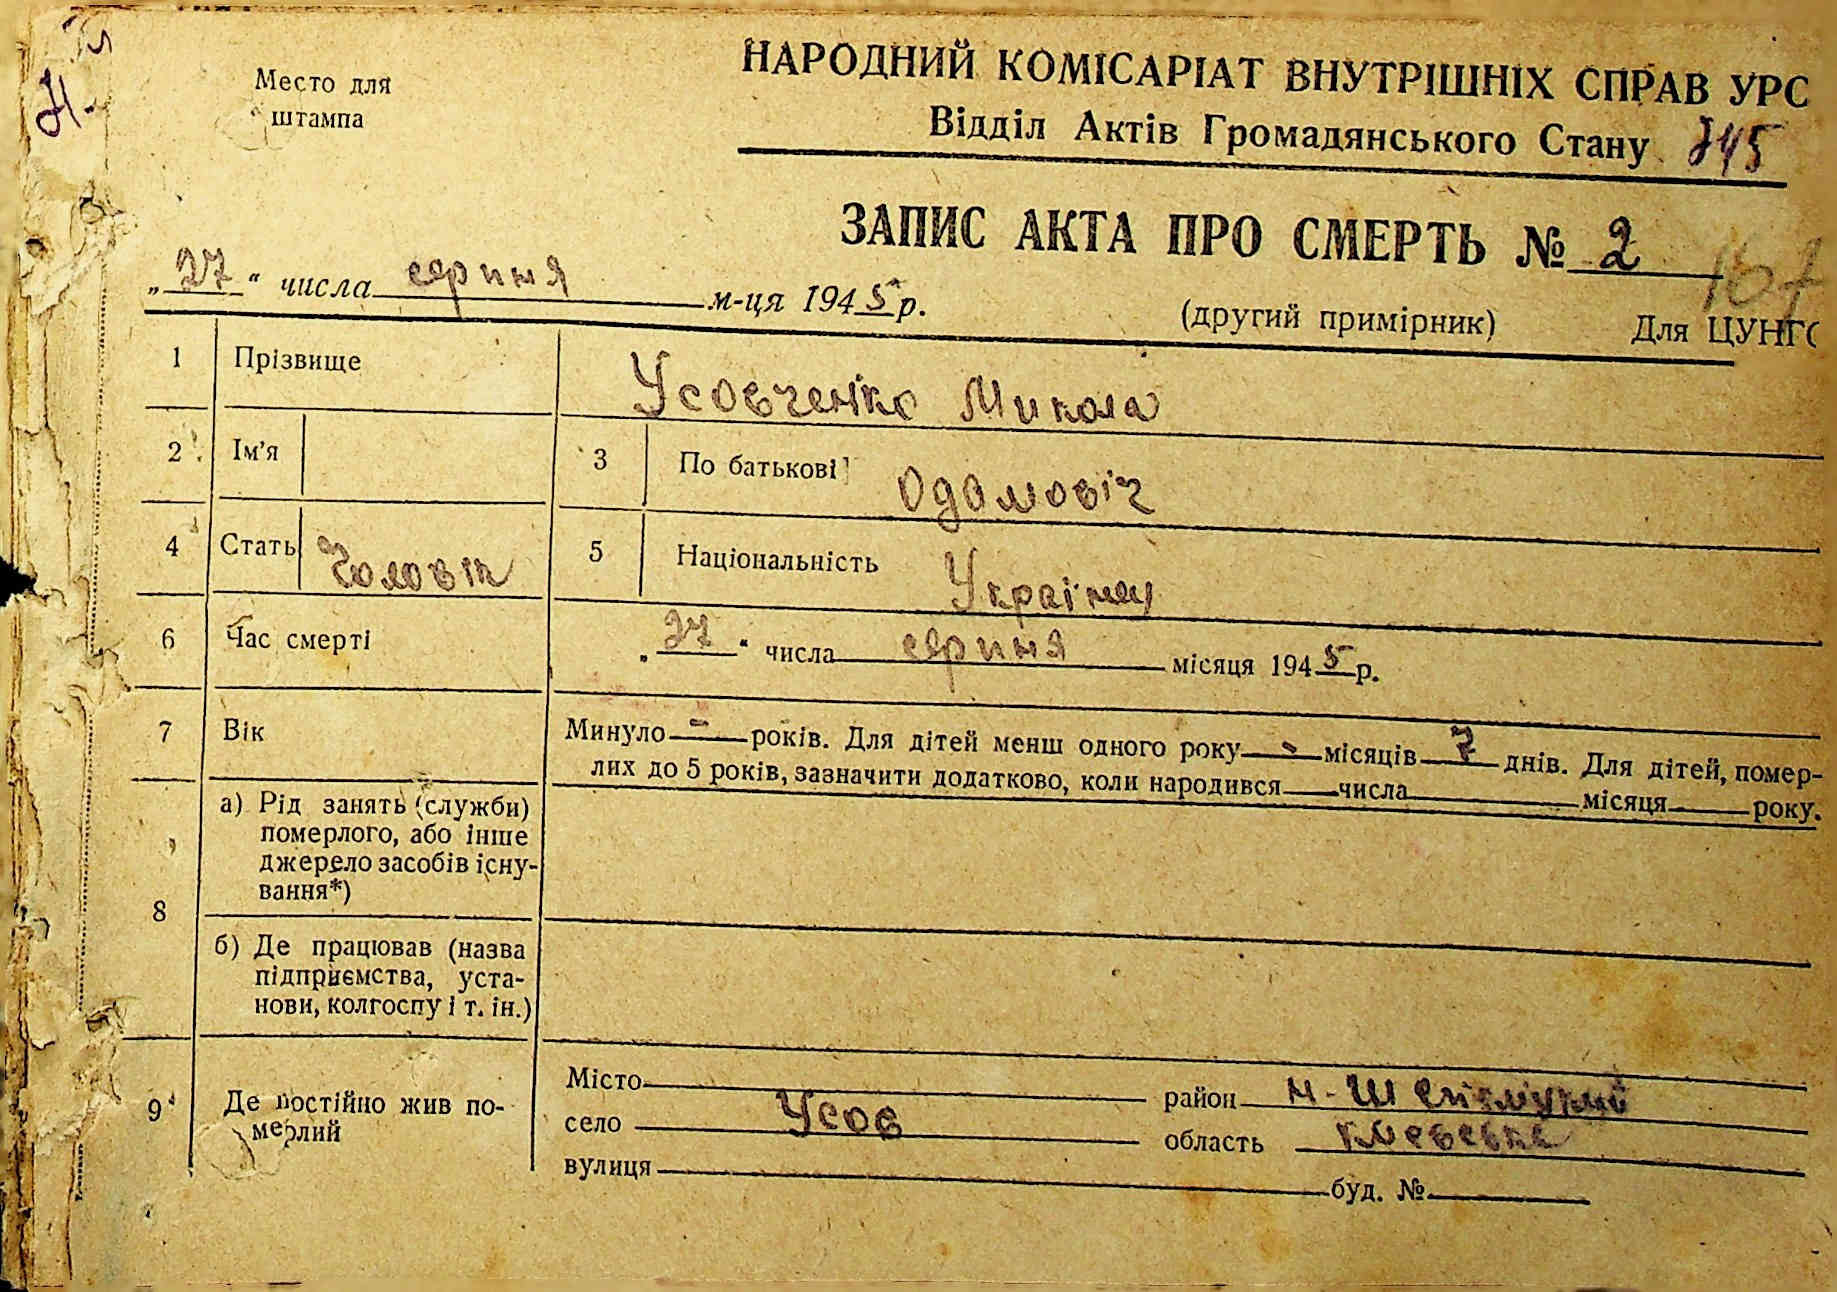 Место для
штампа
НАРОДНИЙ КОМІСАРІАТ ВНУТРІШНІХ СПРАВ УРС
Відділ Актів Громадянського Стану 745
ЗАПИС АКТА ПРО СМЕРТЬ № 2
167
„27“ числа серпня м-ця 1945 р.
(другий примірник) Для ЦУНГС
1 Прізвище Усовченко Микола
2 Ім'я
3 По батькові Одамовіч
4 Стать Чоловік
5 Національність Українец
6 Час смерті „27“ числа серпня місяця 1945 р.
7 Вік Минуло - років. Для дітей менш одного року - місяців 7 днів. Для дітей, помер-
лих до 5 років, зазначити додатково, коли народився числа місяця року.
8 а) Рід занять (служби)
померлого, або інше
джерело засобів існу-
вання*)
б) Де працював (назва
підприємства, уста-
нови, колгоспу і т. ін.)
9 Де постійно жив по-
мерлий
Місто район Н-Ш
село Усов область
вулиця буд. №